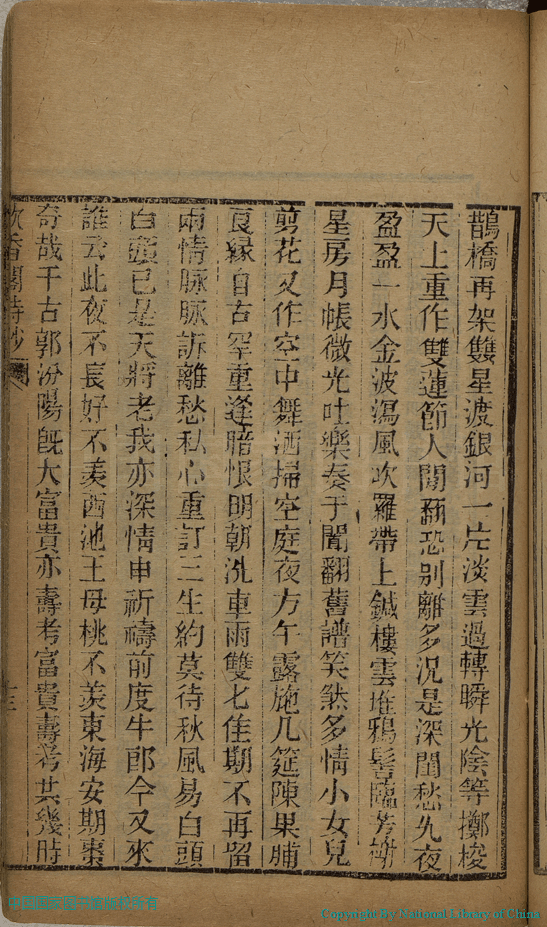 鵲橋再架雙星渡銀河一片淡雲過轉瞬光陰等擲梭
天上重作雙蓮節人間翻恐別離多況是深閨愁九夜
盈盈一水金波瀉風吹羅帶上鍼樓雲堆鴉髻臨芳榭
星房月帳微光吐樂奏于闐翻舊譜笑煞多情小女兒
剪花又作空中舞洒掃空庭夜方午露施几筵陳果脯
良緣自古罕重逢暗恨明朝洗車雨雙七佳期不再留
兩情脉脉訴離愁私心重訂三生約莫待秋風易白頭
白頭已是天將老我亦深情申祈禱前度牛郎今又來
誰云此夜不長好不羨西池王母桃不羨東海安期棗
奇哉千古郭汾陽旣大富貴亦壽考富貴壽考共幾時
香閣詩抄
十三
中国国家图书馆版权所有
Copyright by National Library of China